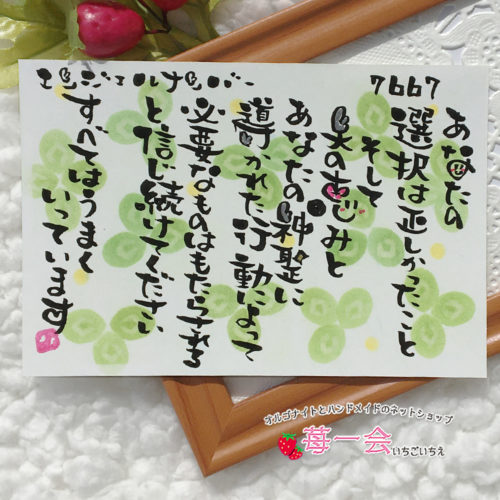 エンジェルナンバー
7667
あなたの
選択は正しかったこと
そして
天の恵みと
あなたの神聖に
導かれた行動によって
必要なものはもたらされる
と信じ続けてください
すべてはうまく
いっています
オルゴナイトとハンドメイドのネットショップ
苺一会
いちごいちえ